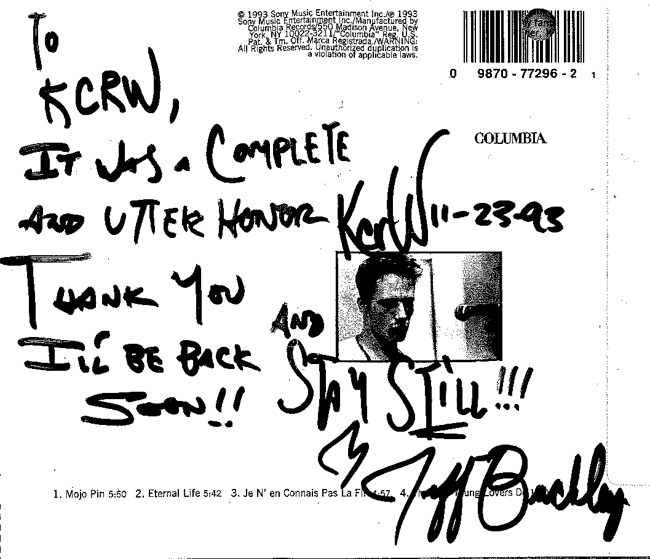 © 1993 Sony Music Entertainment Inc./℗ 1993
Sony Music Entertainment Inc./Manufactured by
Columbia Records/550 Madison Avenue, New
York, NY 10022-3211/"Columbia" Reg. U.S.
Pat. & Tm. Off. Marca Registrada./WARNING:
All Rights Reserved. Unauthorized duplication is
a violation of applicable laws.
0 9870-77296-2 1
COLUMBIA
To
KCRW,
IT WAS A COMPLETE
AND UTTER HONOR
KCRW 11-23-93
THANK YOU
I'LL BE BACK
SOON!!
AND
STAY STILL!!!
Jeff Buckley
1. Mojo Pin 5:50 2. Eternal Life 5:42 3. Je N' en Connais Pas La Fin 4:57 4. Young Lovers Do